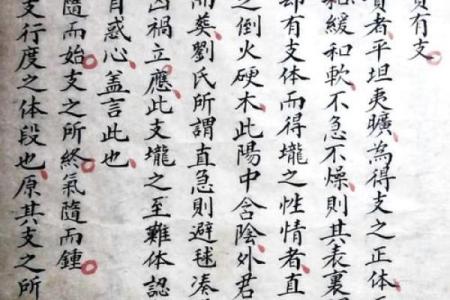 賔有支
資者平坦夷曠為得支之正体
和緩和軟不急不燥則其表裏
却有支体而得壠之性情者直
之倒火硬木此陽中含陰外君
而葬劉氏所謂直急則避毬湊
凶禍立應此支壠之至難体認
自惑心盖言此也
隨而始支之所終氣隨而鍾
支行度之体段也原其支之所